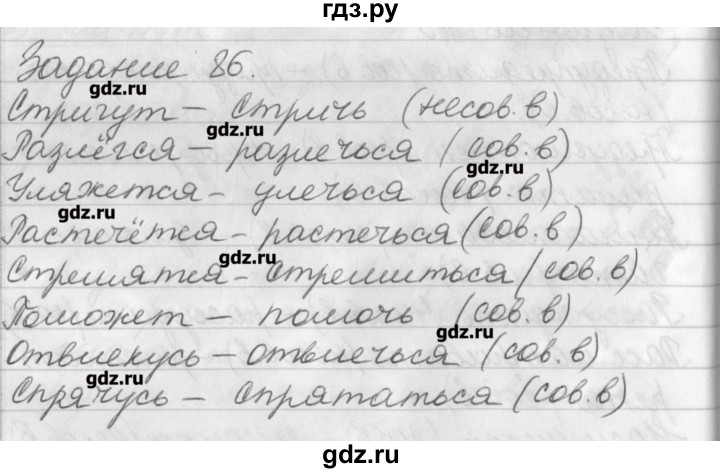 гдз.ру
Задание 86.
gdz.ru
Стригут – стричь (несов.в)
gdz.ru
Разлёгся – разлечься (сов.в)
gdz.ru
Уляжется – улечься (сов.в)
gdz.ru
Растечётся – растечься (сов.в)
gdz.ru
Стремятся – стремиться (сов.в)
Поможет – помочь (сов.в)
gdz.ru
Отвлекусь – отвлечься (сов.в)
gdz.ru
Спрячусь – спрятаться (сов.в)
gdz.ru